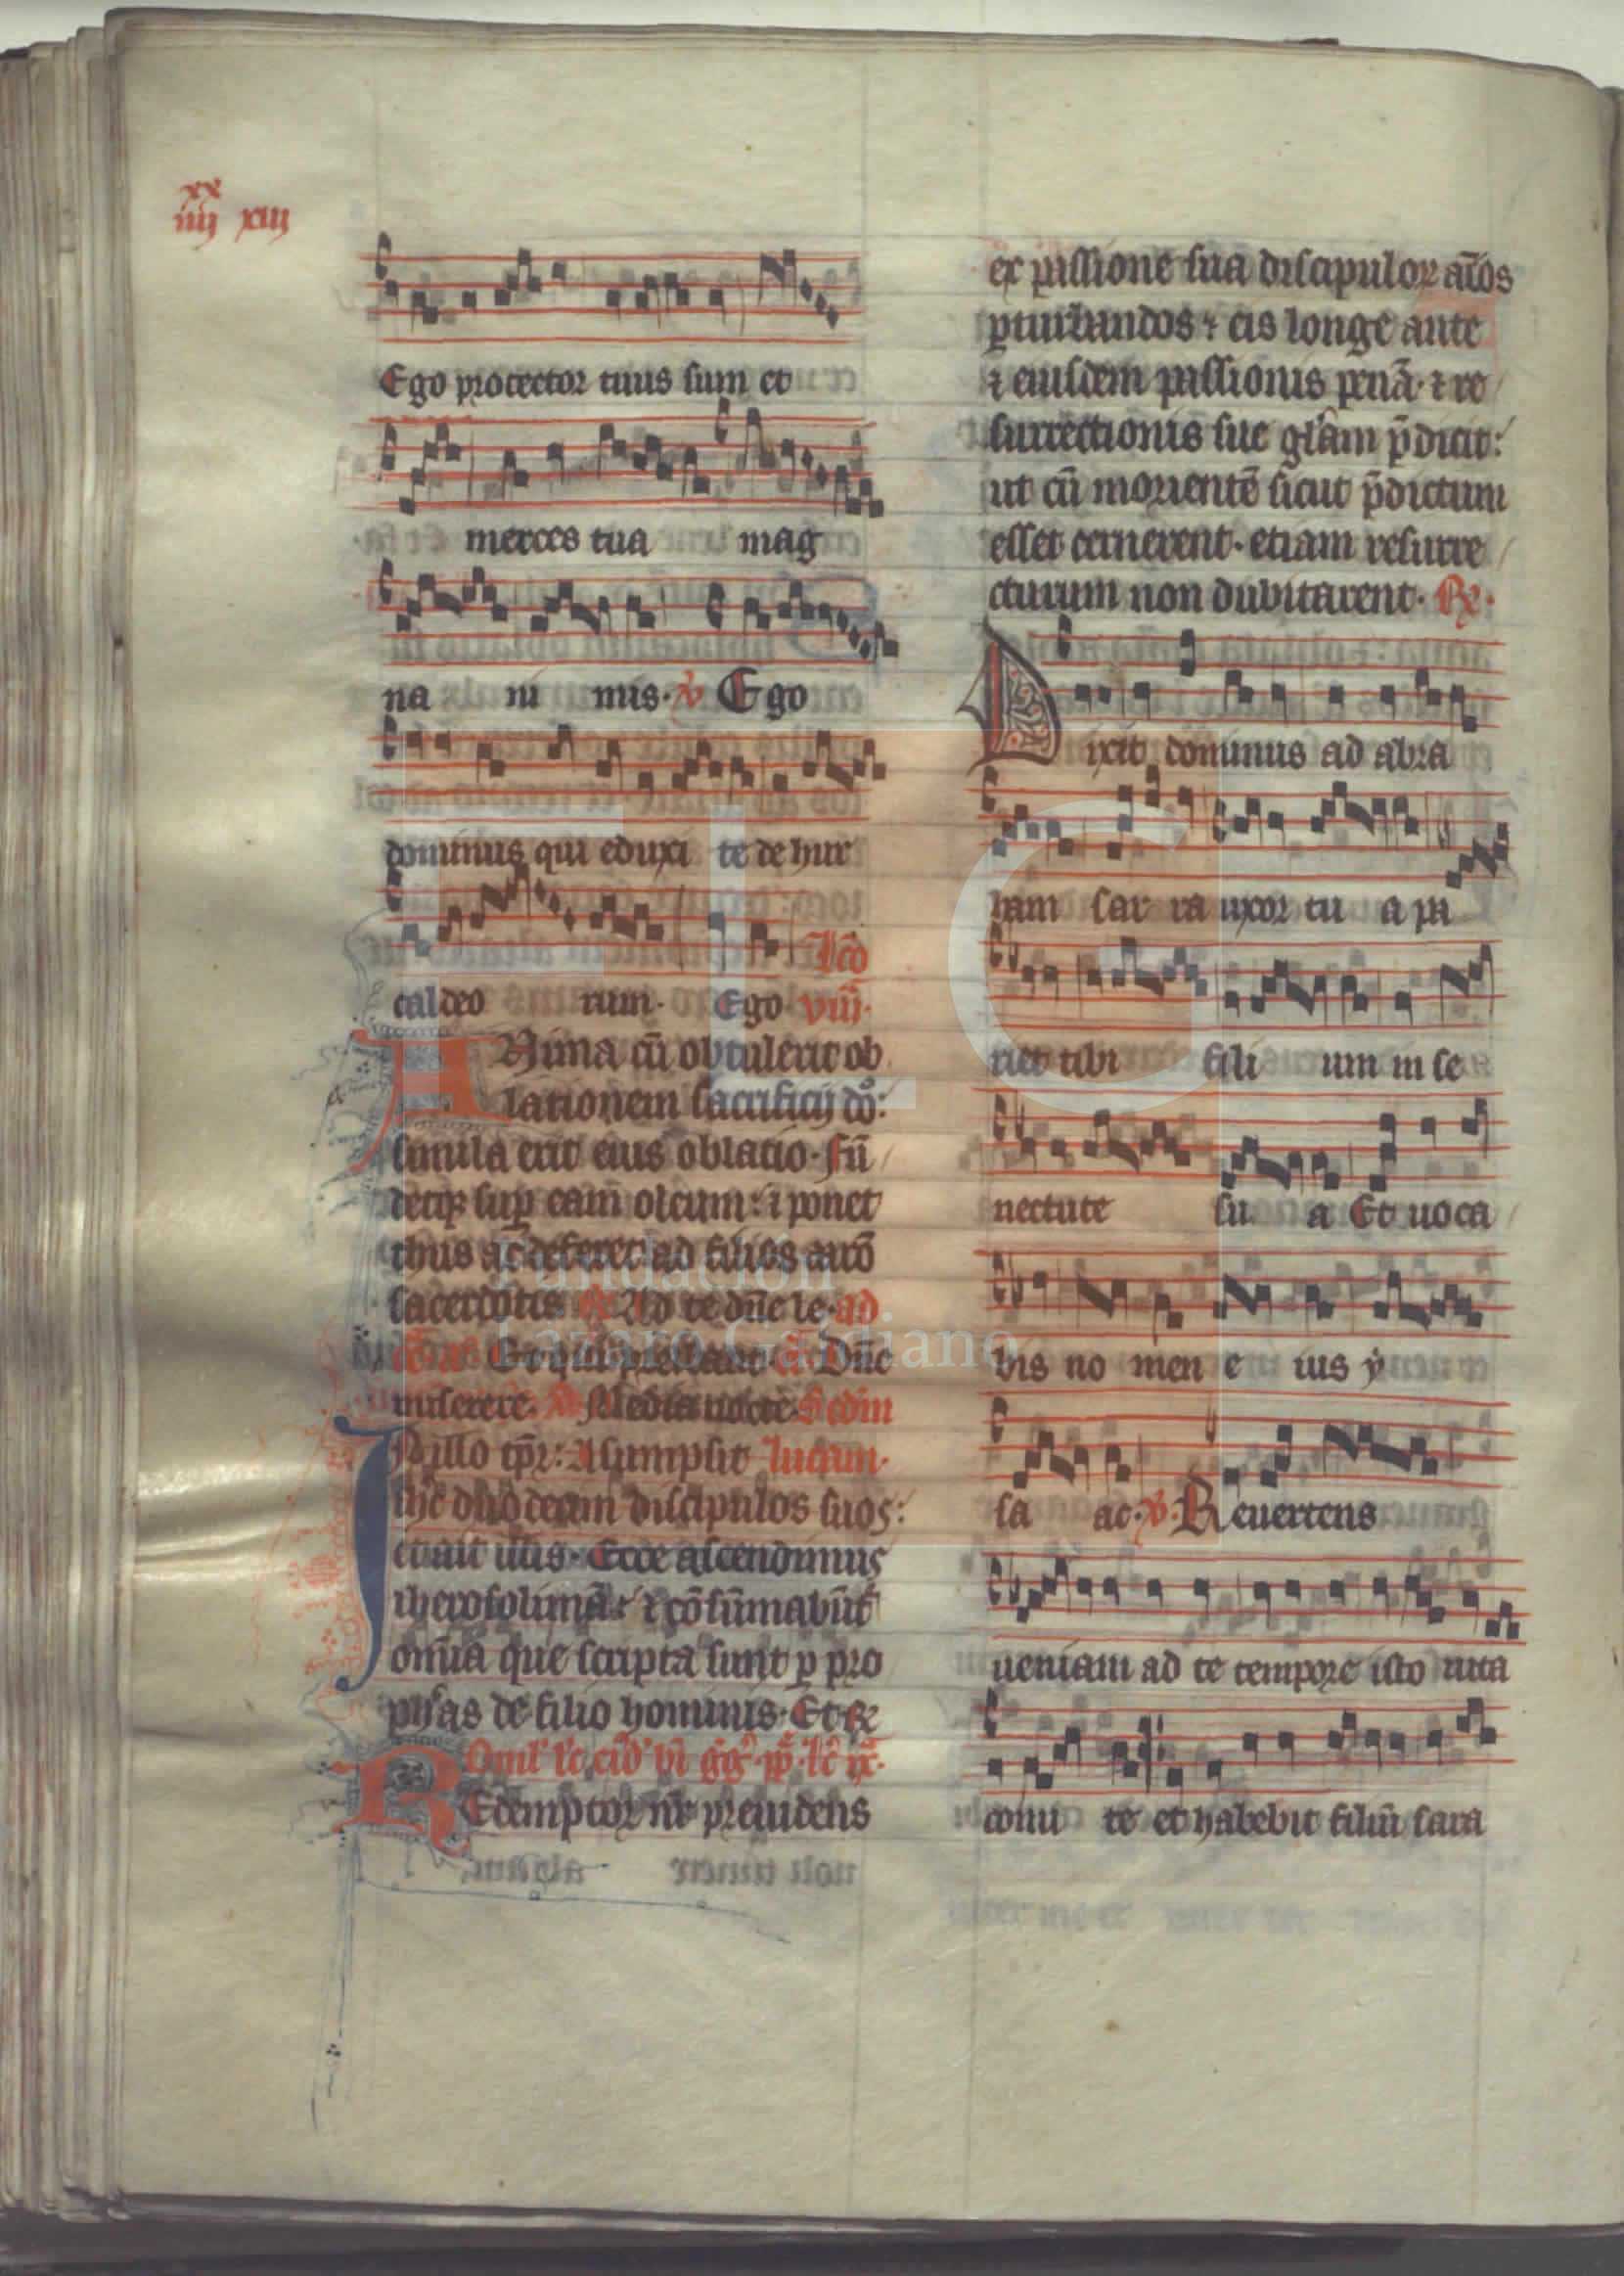 xx
iiij xiij
Ego protector tuus sum et
merces tua mag
na ni mis. ℣ Ego
dominus qui eduxi te de hur
cal deo rum. Ego viij.
Lc̄o
ANima cū obtulerit ob
lationem sacrificij dn̄o:
simila erit eius oblatio. Fū
detqꝫ suꝑ eam oleum: ⁊ ponet
thus ac deferet ad filios aarō
sacerdotis ℟ Ad te dn̄e le. ad
Et qui Dn̄e
miserere. Media nocte. Scd̄m
IN illo tp̄r: Assumpsit lucam.
ihc̄ duodecim discipulos suos:
et ait illis. Ecce ascendimus
iherosolimā: ⁊ cōsūmabūt
om̄ia que scripta sunt ꝑ pro
phās de filio hominis. Et rꝫ
Redemptor nr̄ preuidens
ex passione sua discipuloꝝ aīos
ꝑturbandos ⁊ eis longe ante
⁊ eiusdem passionis penā. ⁊ re
surrectionis sue glām p̄dicit:
ut cū morientē sicut p̄dictum
esset cernerent. etiam resurre
cturum non dubitarent. ℟.
Dixit dominus ad abra
ham sar ra uxor tu a pa
riet tibi fili um in se
nectute su a Et uoca
bis no men e ius y
sa ac. ℣. Reuertens
ueniam ad te tempore isto uita
comi te et habebit filiū sara
Fundación
Lázaro Galdiano
FLG